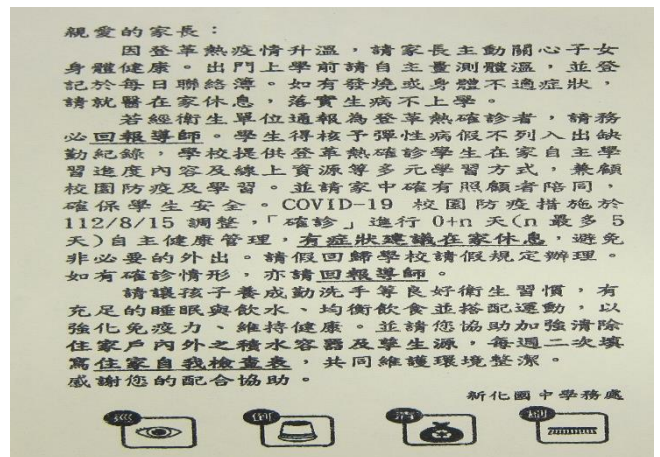 親愛的家長：
因登革熱疫情升溫，請家長主動關心子女
身體健康。出門上學前請自主量測體溫，並登
記於每日聯絡簿。如有發燒或身體不適症狀，
請就醫在家休息，落實生病不上學。
若經衛生單位通報為登革熱確診者，請務
必回報導師。學生得核予彈性病假不列入出缺
勤紀錄，學校提供登革熱確診學生在家自主學
習進度內容及線上資源等多元學習方式，兼顧
校園防疫及學習。並請家中確有照顧者陪同，
確保學生安全。COVID-19 校園防疫措施於
112/8/15 調整，「確診」進行 0+n 天(n 最多 5
天)自主健康管理，有症狀建議在家休息，避免
非必要的外出。請假回歸學校請假規定辦理。
如有確診情形，亦請回報導師。
請讓孩子養成勤洗手等良好衛生習慣，有
充足的睡眠與飲水、均衡飲食並搭配運動，以
強化免疫力、維持健康。並請您協助加強清除
住家戶內外之積水容器及孳生源，每週二次填
寫住家自我檢查表，共同維護環境整潔。
感謝您的配合協助。
新化國中學務處
巡 倒 清 刷